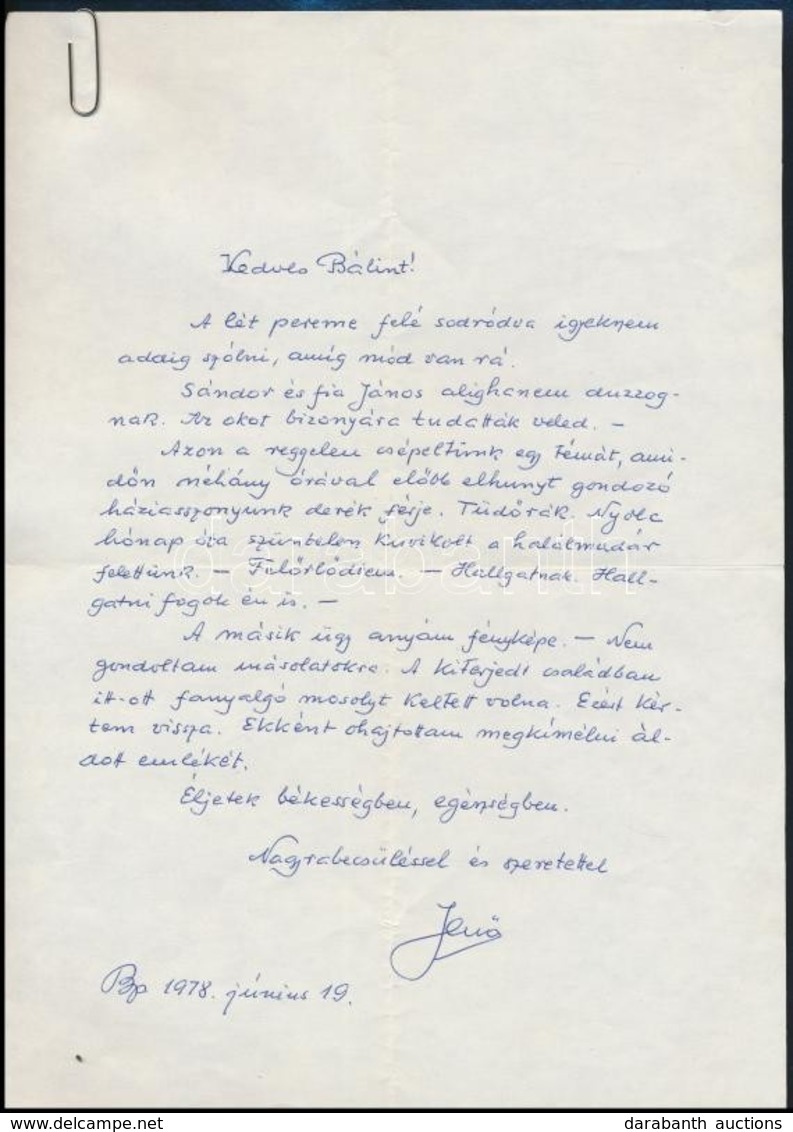 Kedves Bálint!
A lét pereme felé sodródva igyeknem
addig szólni, amíg mód van rá.
Sándor és fia János alighanem duzzog-
nak. Az okot bizonyára tudatták veled. –
Azon a reggelen csépeltünk egy témát, ami-
dőn néhány órával előbb elhunyt gondozó
háziasszonyunk derék férje. Tüdőrák. Nyolc
hónap óta szüntelen kuvikolt a halálmadár
felettünk. – Felőrlődtem. – Hallgatnak. Hall-
gatni fogok én is. –
A másik ügy anyám fényképe. – Nem
gondoltam másolatokra. A kiterjedt családban
itt-ott fanyalgó mosolyt keltett volna. Ezért kér-
tem vissza. Ekként óhajtottam megkímélni ál-
dott emlékét.
Éljetek békességben, egészségben.
Nagyrabecsüléssel és szeretettel
Jenő
Bp 1978. június 19.
darabanth
delcampe.net
darabanth auctions